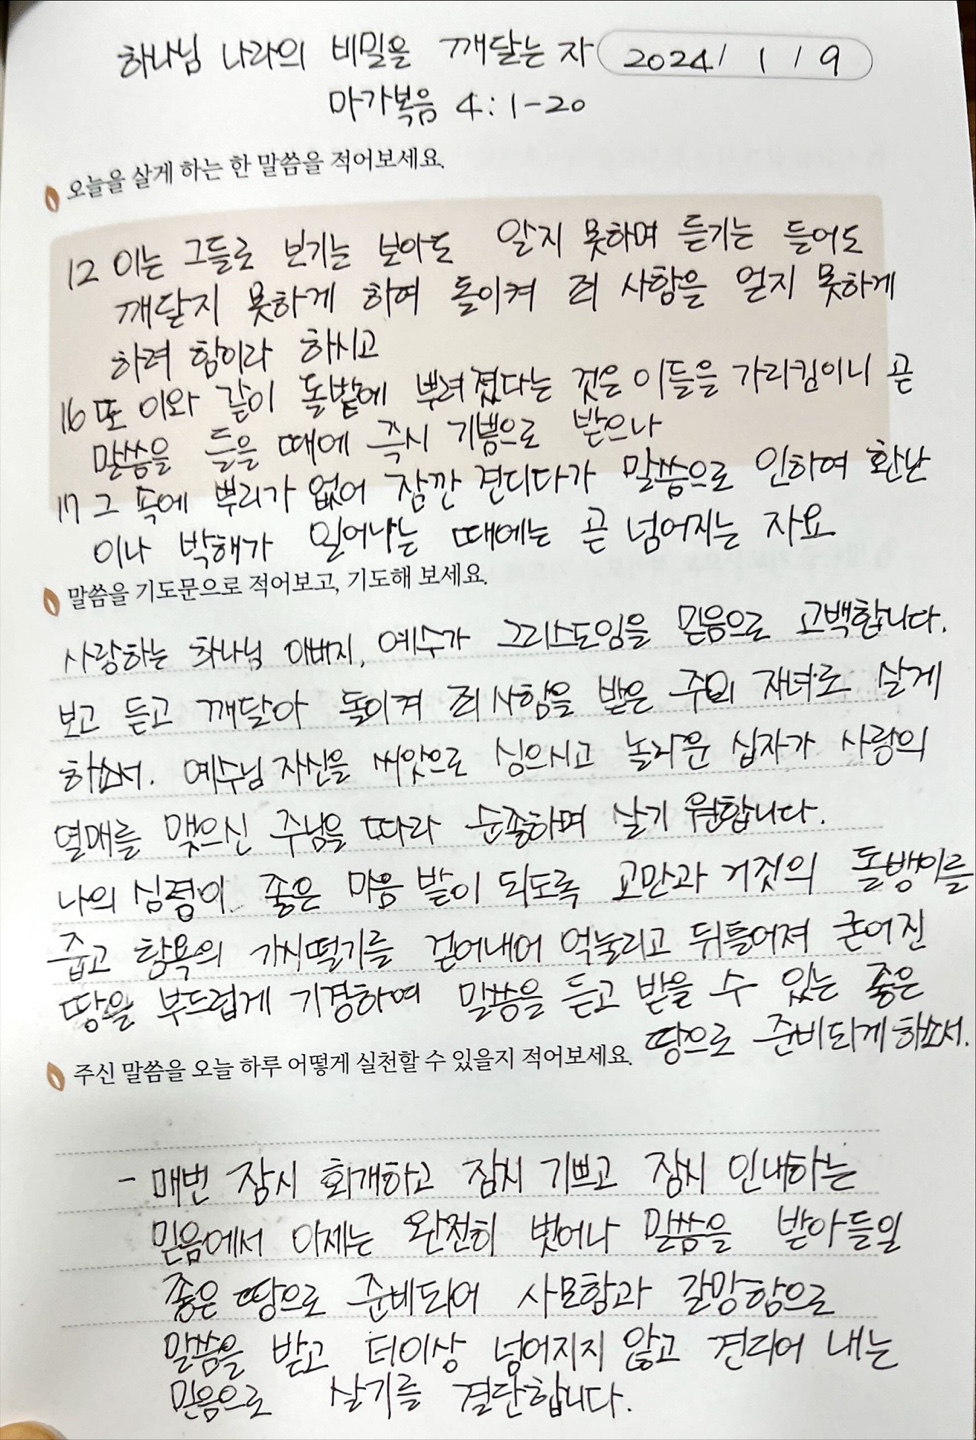 하나님 나라의 비밀을 깨달는 자 2024/ 1 / 9
마가복음 4:1-20
오늘을 살게 하는 한 말씀을 적어보세요.
12 이는 그들로 보기는 보아도 알지 못하며 듣기는 들어도
깨닫지 못하게 하여 돌이켜 죄 사함을 얻지 못하게
하려 함이라 하시고
16 또 이와 같이 돌밭에 뿌려졌다는 것은 이들을 가리킴이니 곧
말씀을 들을 때에 즉시 기쁨으로 받으나
17 그 속에 뿌리가 없어 잠깐 견디다가 말씀으로 인하여 환난
이나 박해가 일어나는 때에는 곧 넘어지는 자요
말씀을 기도문으로 적어보고, 기도해 보세요.
사랑하는 하나님 아버지, 예수가 그리스도임을 믿음으로 고백합니다.
보고 듣고 깨달아 돌이켜 죄 사함을 받은 주의 자녀로 살게
하소서. 예수님 자신을 씨앗으로 심으시고 놀라운 십자가 사랑의
열매를 맺으신 주님을 따라 순종하며 살기 원합니다.
나의 심령이 좋은 마음 밭이 되도록 교만과 거짓의 돌뱅이를
줍고 탐욕의 가시떨기를 걷어내어 억눌리고 뒤틀어져 굳어진
땅을 부드럽게 기경하여 말씀을 듣고 받을 수 있는 좋은
땅으로 준비되게 하소서.
주신 말씀을 오늘 하루 어떻게 실천할 수 있을지 적어보세요.
- 매번 잠시 회개하고 잠시 기쁘고 잠시 인내하는
믿음에서 이제는 완전히 벗어나 말씀을 받아들일
좋은 땅으로 준비되어 사모함과 갈망함으로
말씀을 받고 더이상 넘어지지 않고 견디어 내는
믿음으로 살기를 결단합니다.